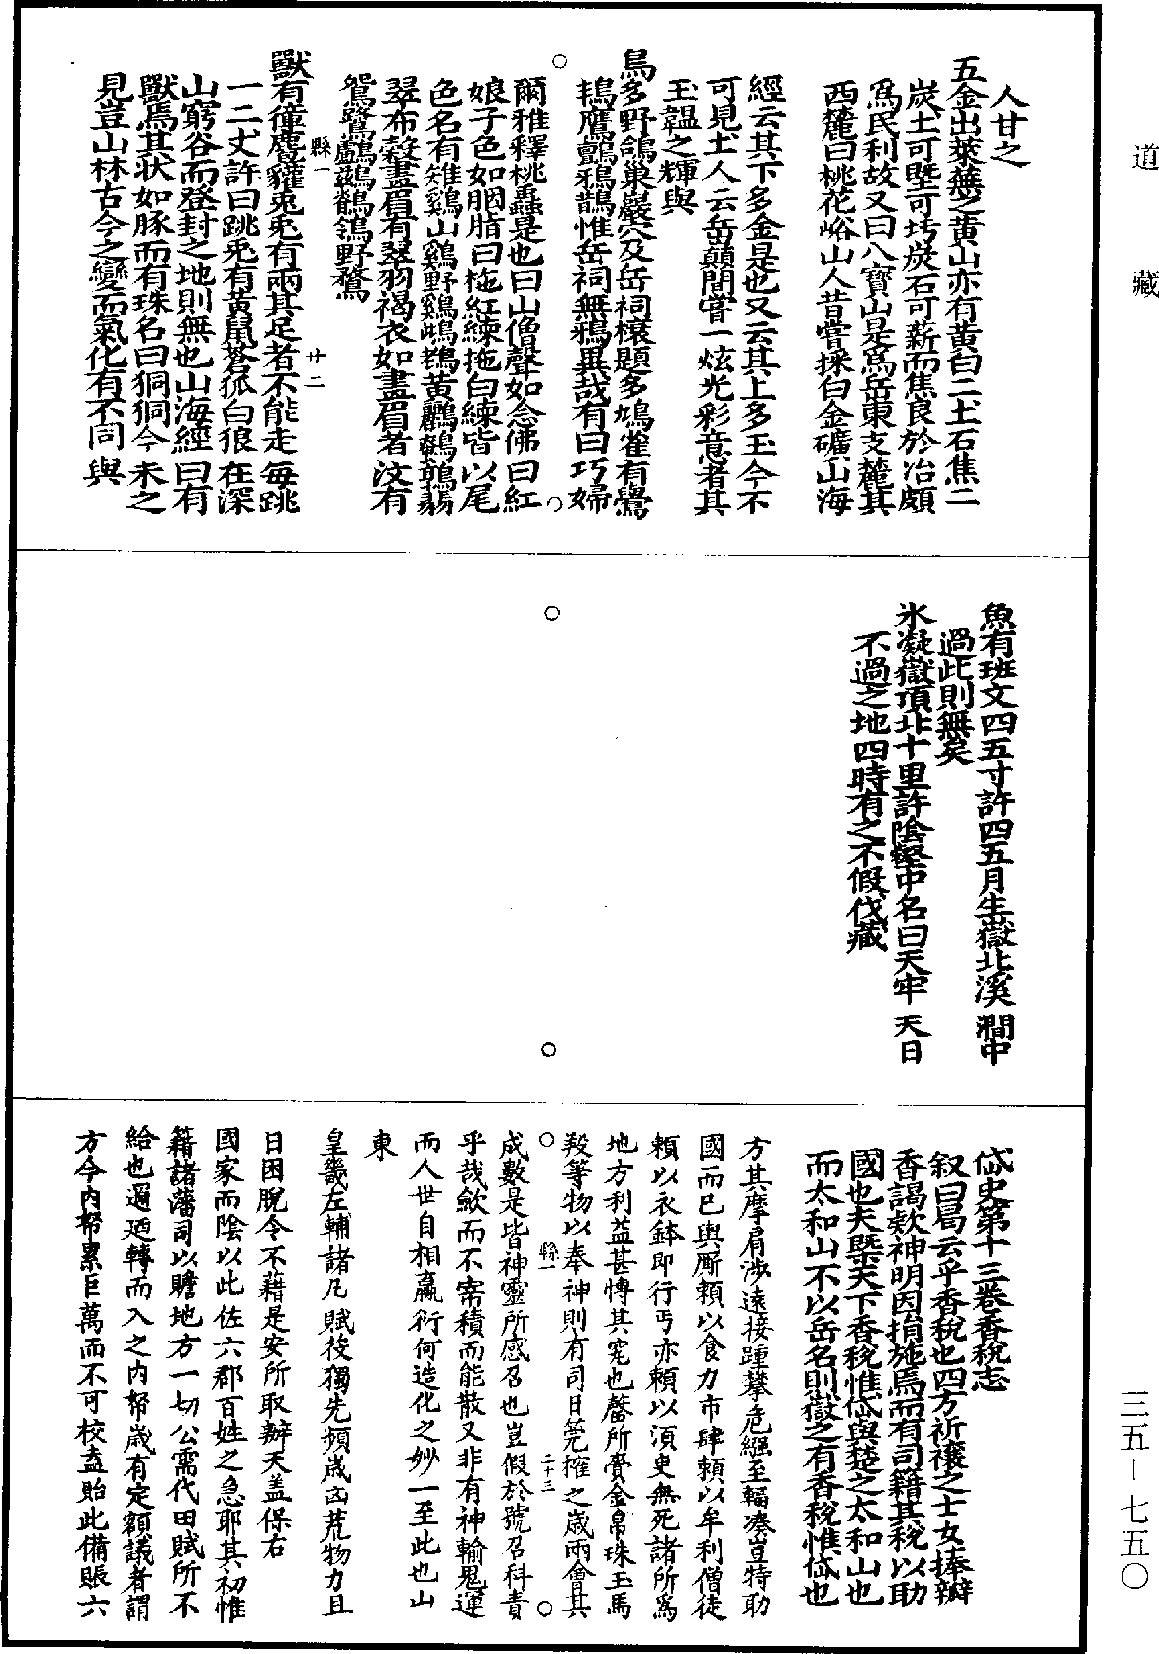 道藏
人甘之
五金出萊蕪之黃山亦有黃白二土石焦二
炭土可墍可圬炭石可薪而焦良於冶頗
為民利故又曰八寶山是為岳東支麓其
西麓曰桃花峪山人昔嘗採白金礦山海
經云其下多金是也又云其上多玉今不
可見土人云岳巔間嘗一炫光彩意者其
玉韞之輝與
鳥多野鴿巢巖穴及岳祠榱題多鳩雀有鸒
鴇鷹鸇鴉鵲惟岳祠無鴉異哉有曰巧婦
爾雅釋桃蟲是也曰山僧聲如念佛曰紅
娘子色如胭脂曰拖紅練拖白練皆以尾
色名有雉鷄山鷄野鷄鵓鴣黃鸝鵪鶉翡
翠布穀畫眉有翠羽褐衣如畫眉者汶有
鴛鷺鸕鷀鶺鴒野鶩
獸有㹮麞獾兎兎有兩其足者不能走每跳
一二丈許曰跳兎有黃鼠蒼狐白狼在深
山窮谷而登封之地則無也山海經曰有
獸焉其狀如豚而有珠名曰狪狪今未之
見豈山林古今之變而氣化有不同與
縣一
廿二
魚有班文四五寸許四五月生嶽北溪澗中
過此則無矣
氷凝嶽頂北十里許陰壑中名曰天牢天日
不過之地四時有之不假伐藏
岱史第十三卷香稅志
叙曰曷云乎香稅也四方祈禳之士女捧瓣
香謁欵神明因捐施焉而有司籍其稅以助
國也夫槩天下香稅惟岱與楚之太和山也
而太和山不以岳名則嶽之有香稅惟岱也
方其摩肩涉遠接踵攀危繦至輻凑豈特助
國而已與厮賴以食力市肆賴以牟利僧徒
賴以衣鉢即行丐亦賴以須臾無死諸所為
地方利益甚慱其寃也罄所賫金帛珠玉馬
羖等物以奉神則有司日筦搉之歲兩會其
成數是皆神靈所感召也豈假於號召科責
乎哉歛而不寄積而能散又非有神輸鬼運
而人世自相贏衍何造化之妙一至此也山
東
皇畿左輔諸凡賦役獨先頻歲凶荒物力且
日困脫令不藉是安所取辦天盖保右
國家而陰以此佐六郡百姓之急耶其初惟
籍諸藩司以贍地方一切公需代田賦所不
給也逥廼轉而入之內帑歲有定額議者謂
方今內帑累巨萬而不可校盍貽此備賑六
縣一
二十三
三五—七五〇